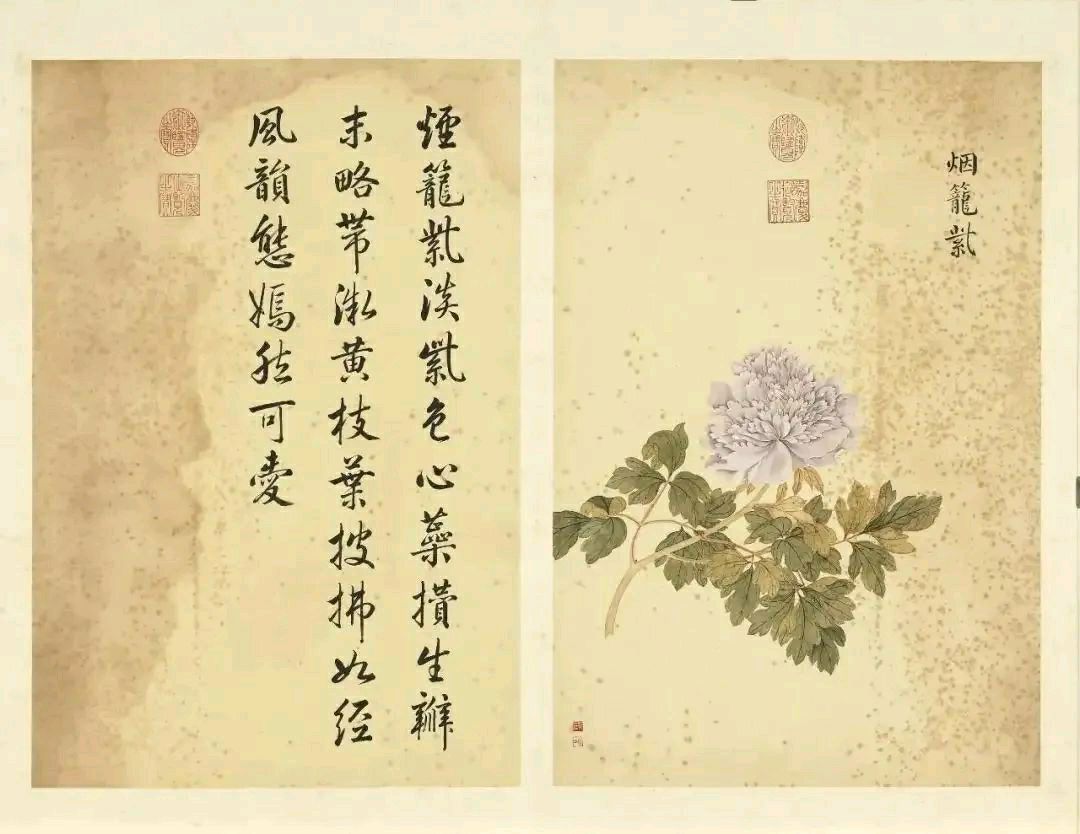 烟籠紫
煙籠紫淡紫色心蘂攢生瓣
末略帶微黃枝葉披拂如經
風韻態嫣然可愛